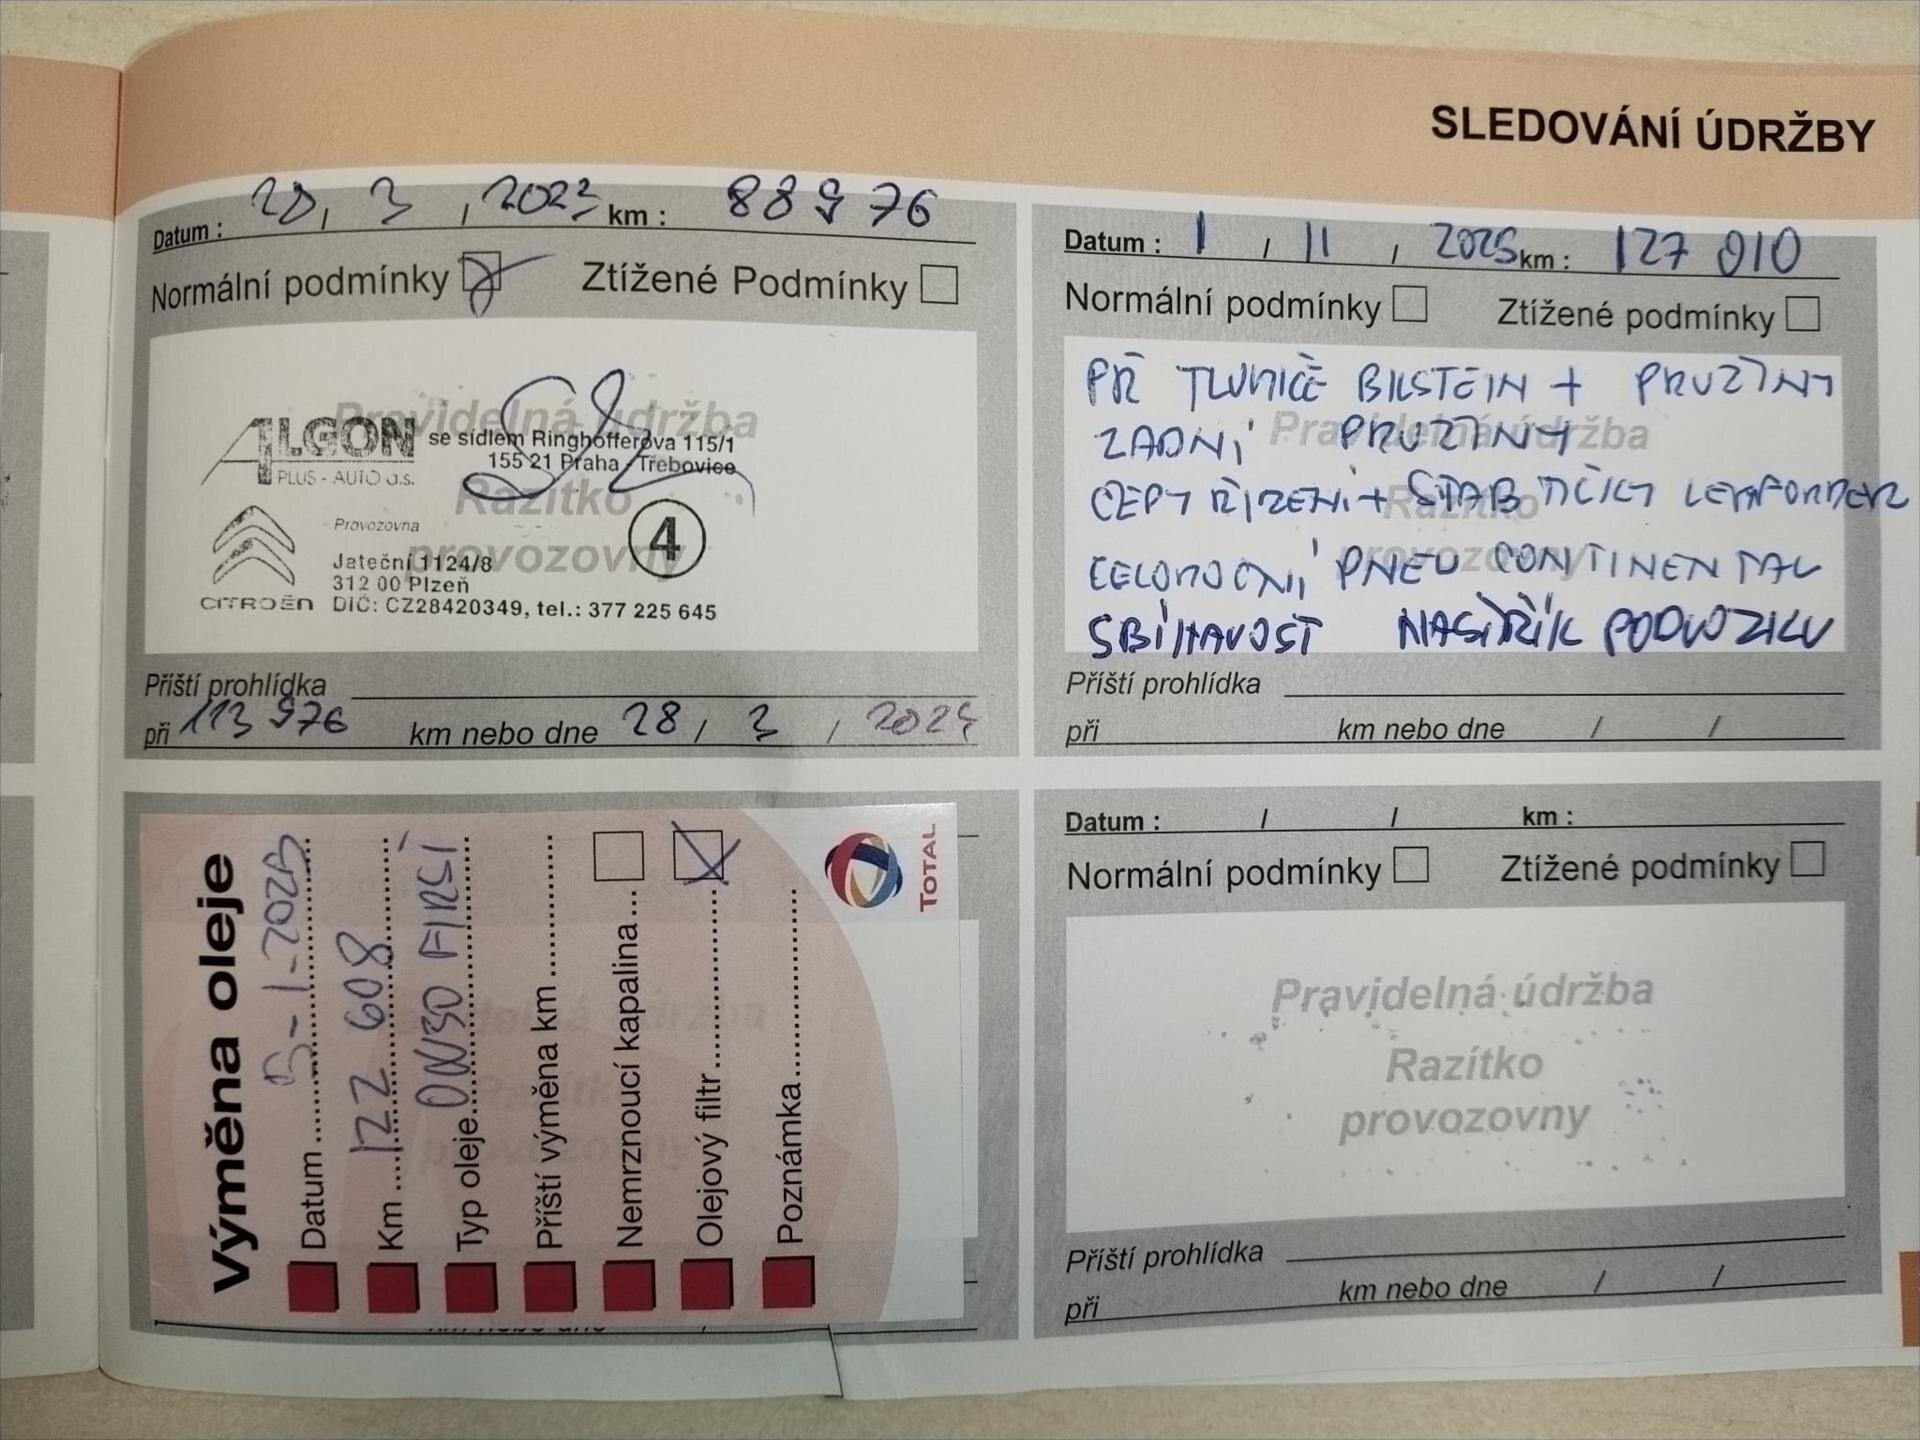 SLEDOVÁNÍ ÚDRŽBY
Datum : 28, 3, 2023 km : 88976
Normální podmínky Ztížené Podmínky
Pravidelná údržba
Razítko
provozovny
ALGON
PLUS - AUTO a.s.
se sídlem Ringhofferova 115/1
155 21 Praha - Třebovice
4
Provozovna
Jateční 1124/8
312 00 Plzeň
CITROËN DIČ: CZ28420349, tel.: 377 225 645
Příští prohlídka
při 113 976 km nebo dne 28 / 3 / 2024
Datum : 1 / 11 , 2025 km : 127 010
Normální podmínky Ztížené podmínky
Pravidelná údržba
Razítko
provozovny
PŘ TLUMIČE BILSTEIN + PRUŽINY
ZADNÍ PRUŽINY
ČEPY ŘÍZENÍ + STAB TIČKY LEMFORDER
CELOROČNÍ PNEU CONTINENTAL
SBÍHAVOST NÁSTŘIK PODVOZKU
Příští prohlídka
při km nebo dne / /
Výměna oleje
Datum -1-2025
Km 122 608
Typ oleje 0W30 FIRST
Příští výměna km
Nemrznoucí kapalina
Olejový filtr
Poznámka
TOTAL
km nebo dne
Datum : / / km :
Normální podmínky Ztížené podmínky
Pravidelná údržba
Razítko
provozovny
Příští prohlídka
při km nebo dne / /